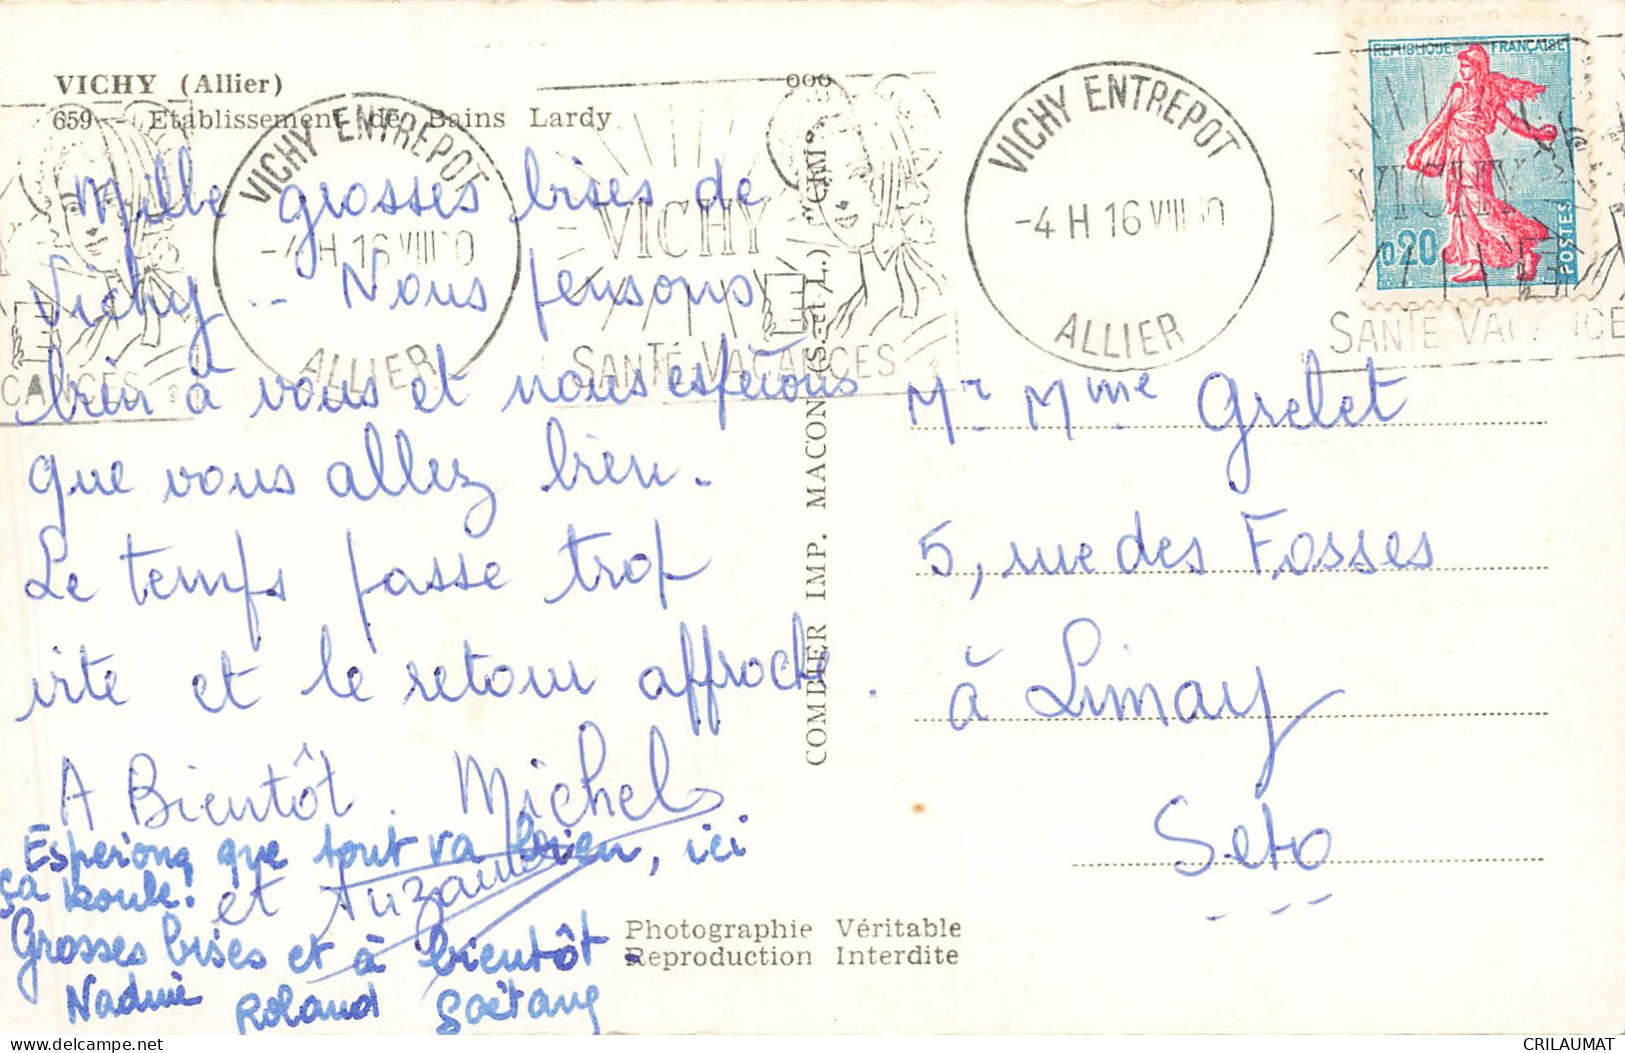 VICHY (Allier)
659 - Etablissement de Bains Lardy
Mille grosses bises de
Vichy .. Nous pensons
bien à vous et nous espérons
que vous allez bien.
Le temps passe trop
vite et le retour approche.
A Bientôt. Michel
et Suzanne
Esperons que tout va bien, ici
ça roule!
Grosses bises et à bientôt
Nadine Roland Gaëtang
ooo
COMBIER IMP. MACON (S.-et-L.) "CIM"
Photographie Véritable
Reproduction Interdite
VICHY ENTREPOT
-4 H 16 VIII
ALLIER
VICHY
SANTÉ-VACANCES
CANCES
VICHY ENTREPOT
-4 H 16 VIII
ALLIER
VICHY
SANTÉ-VACANCES
REPUBLIQUE FRANÇAISE
0,20
POSTES
Mr Mme Grelet
5, rue des Fosses
à Limay
Seto
CRILAUMAT